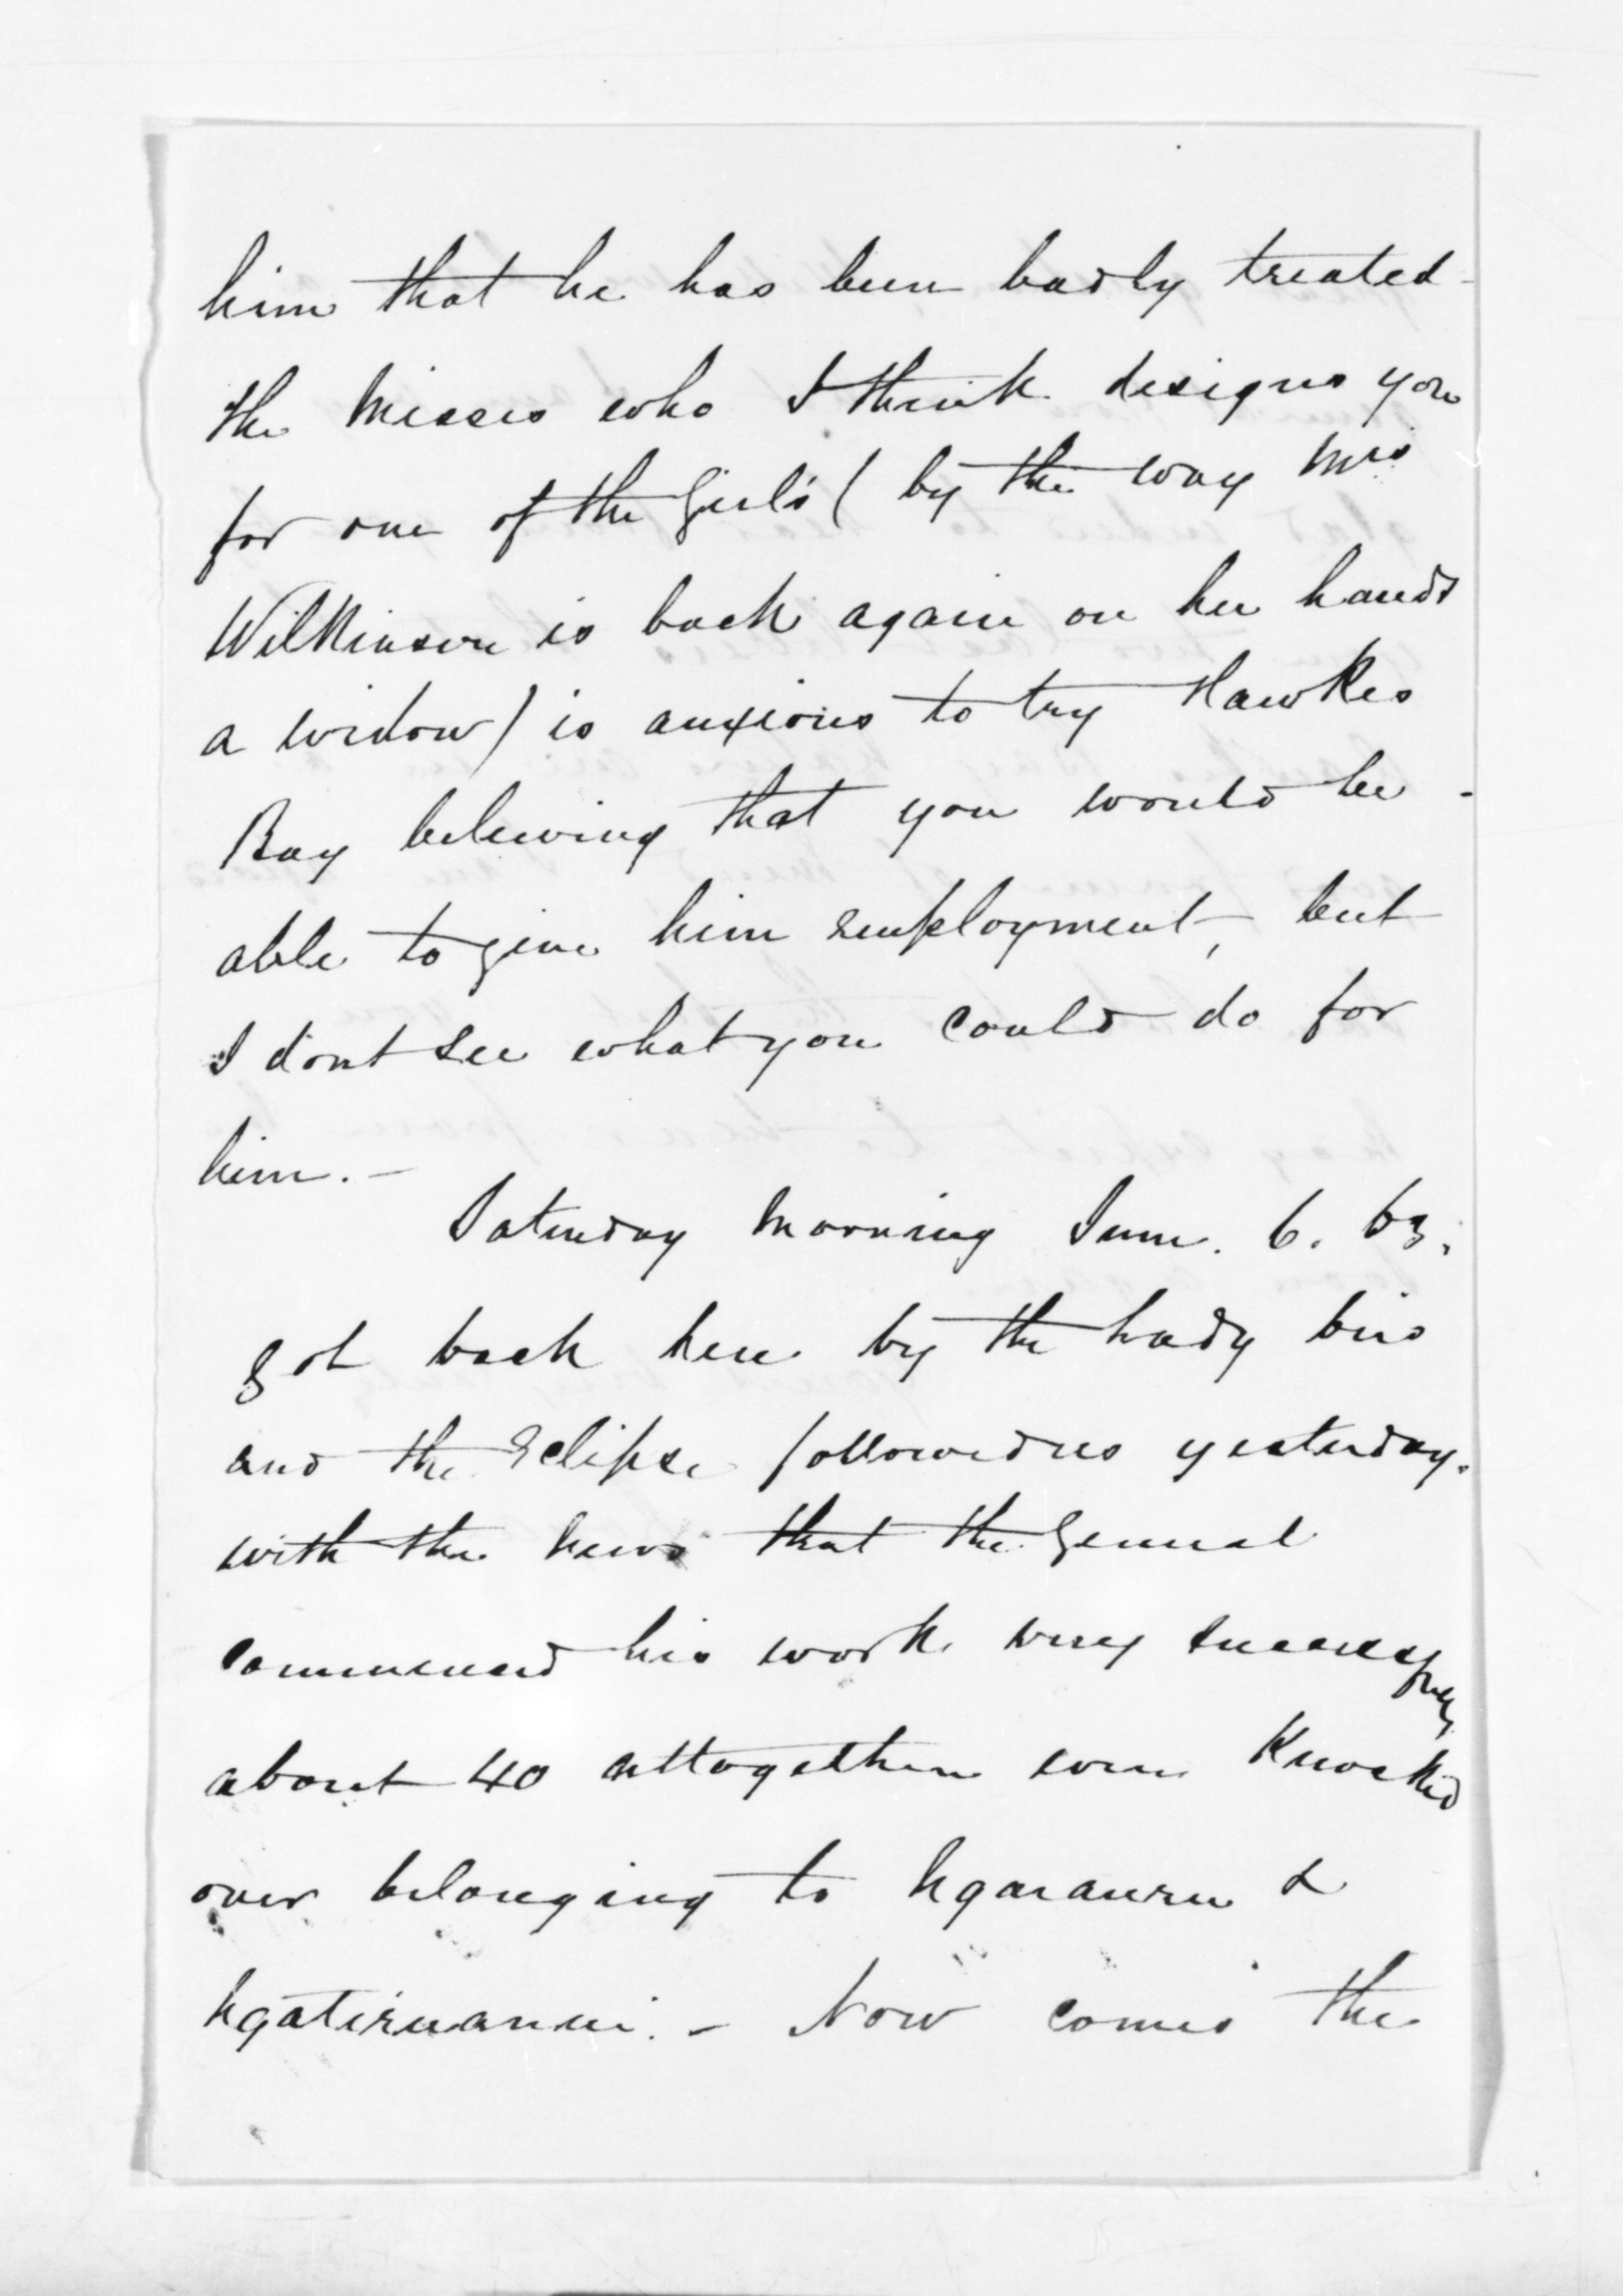 him that he has been badly treated -
the Misses who I think designs you
for one of the Girls ( by the way Mrs
Wilkinson is back again on her hands
a widow ) is anxious to try Hawkes
Bay beleiving that you would be -
able to give him employment, but
I dont see what you could do for
him. -
Saturday Morning June. 6. 63.
got back here by the Lady bird
and the Eclipse followed us yesterday.
with the news that the General
commenced his work very successfully
about 40 altogether were Knocked
over belonging to Ngarauru &
Ngatiruanui. - Now comes the